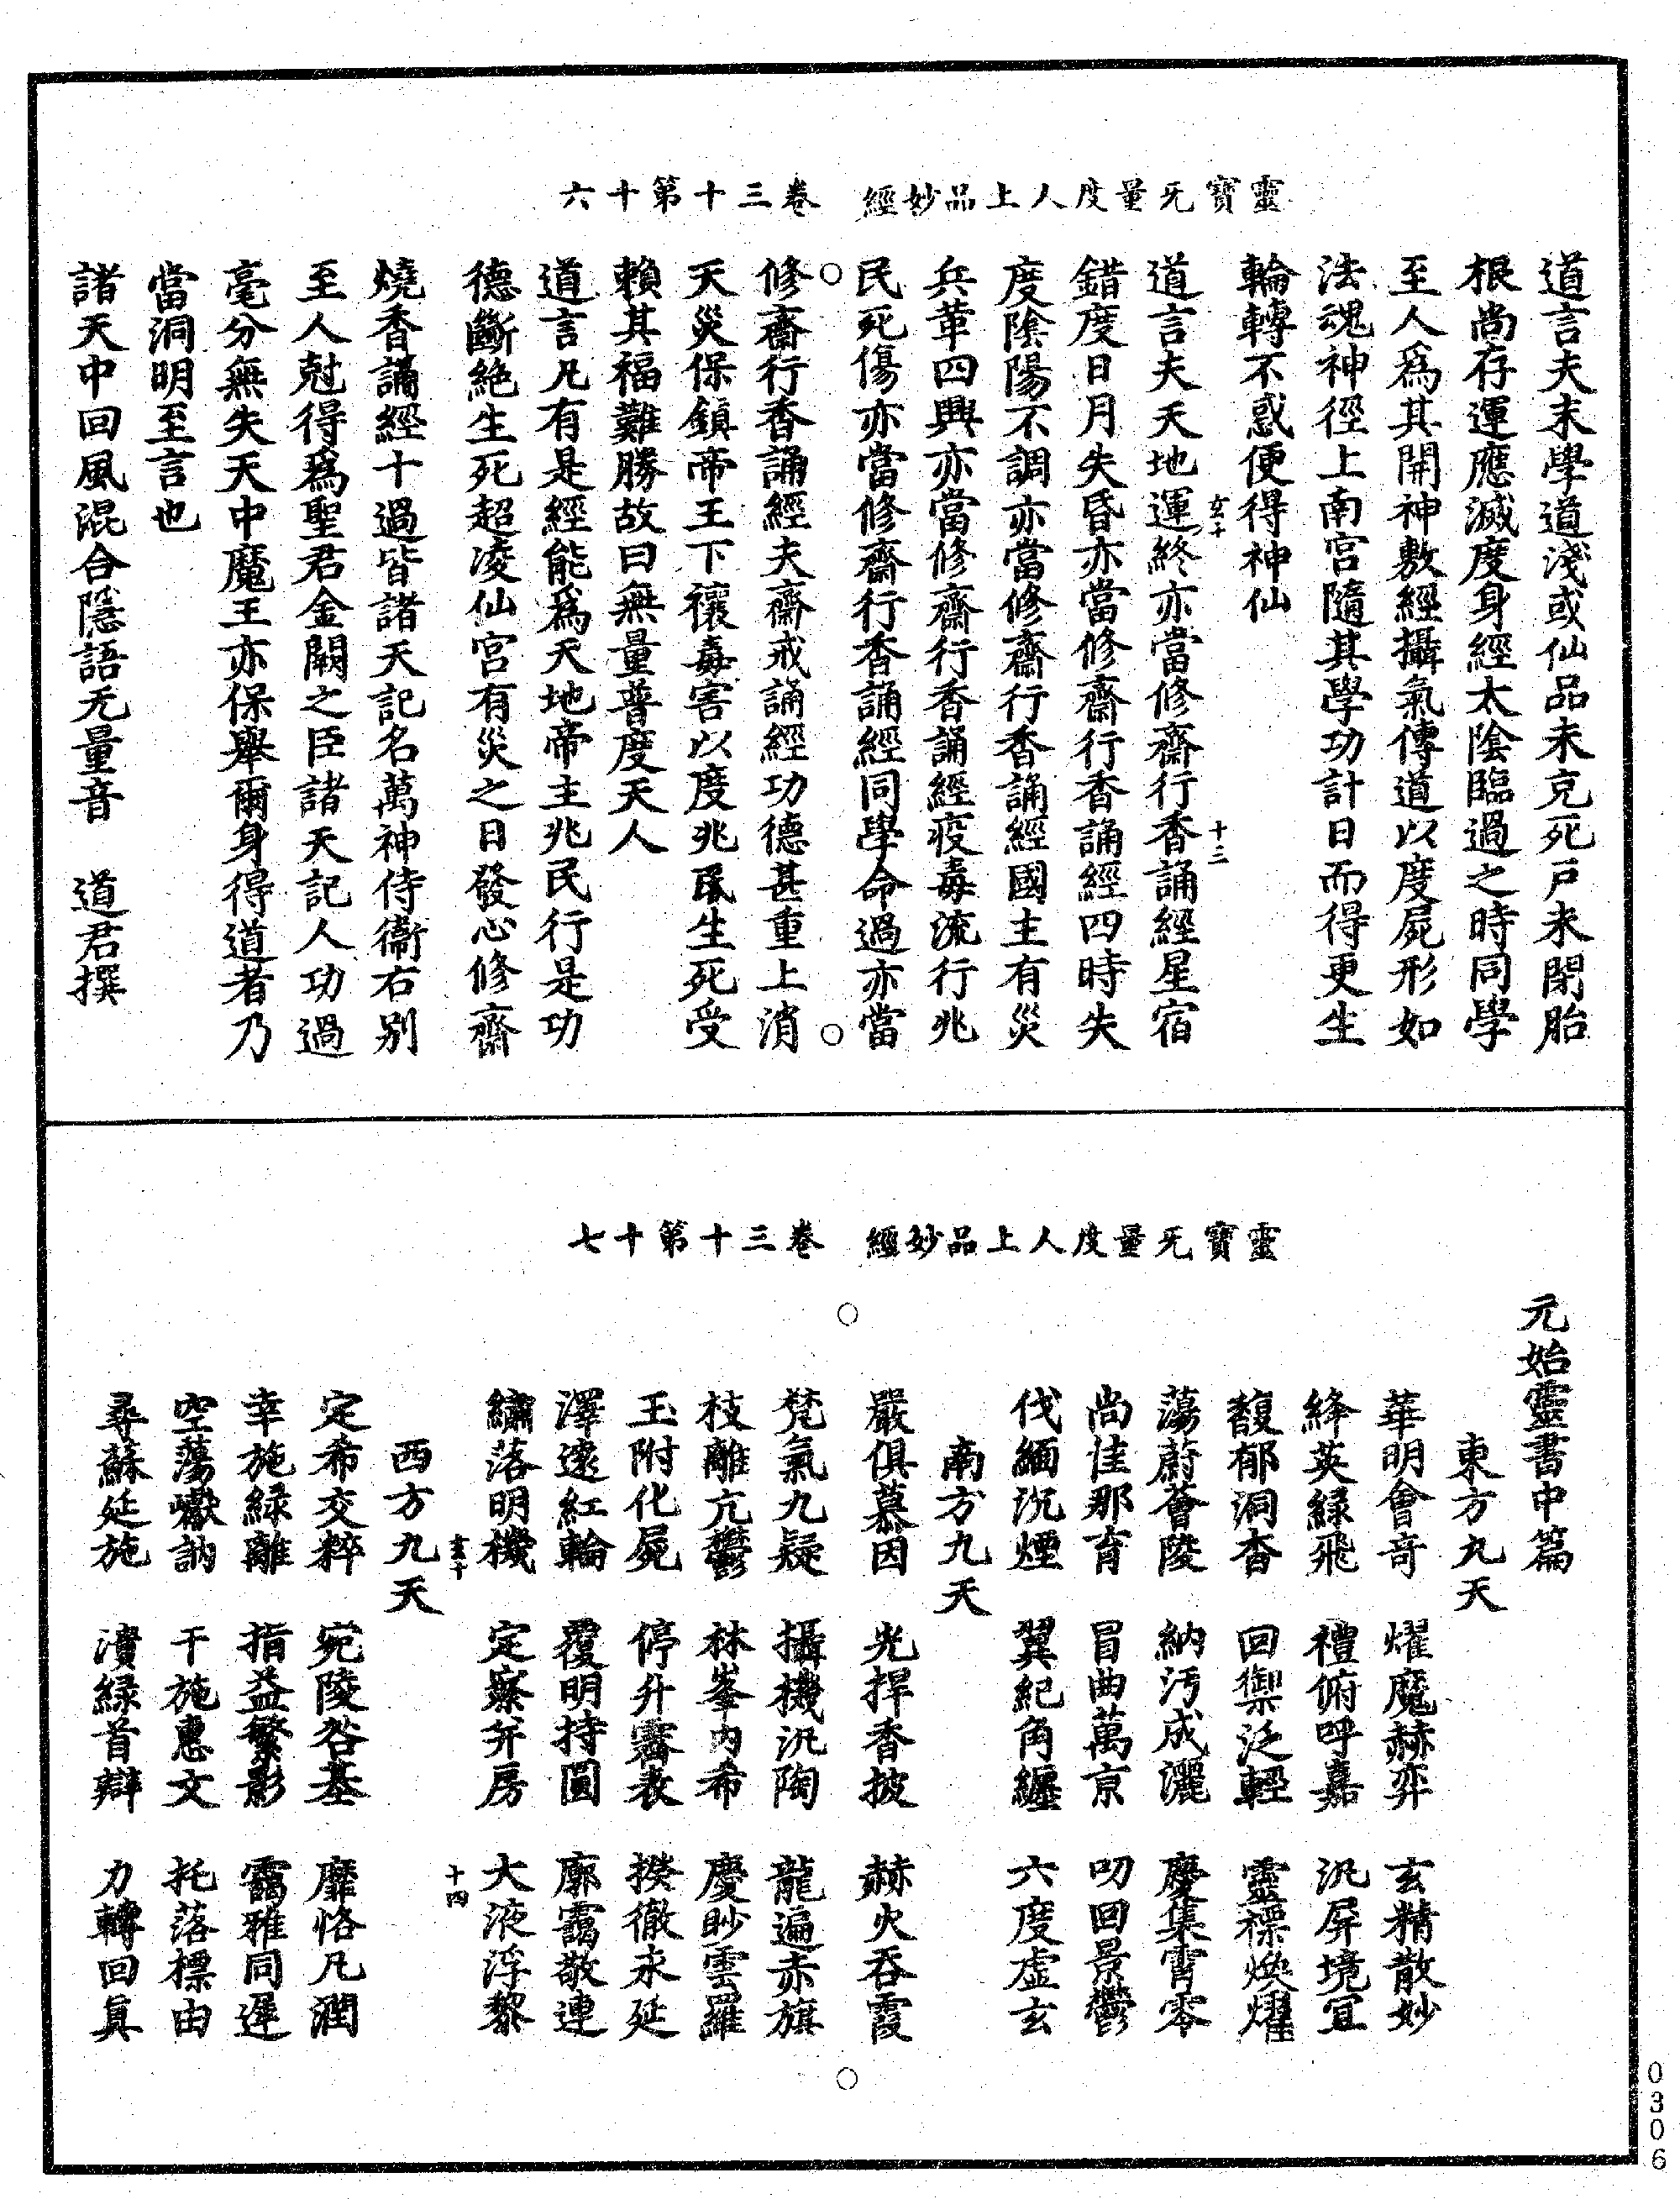 靈寶无量度人上品妙經　卷三十第十六
道言夫末學道淺或仙品未克死戶未閉胎
根尚存運應滅度身經太陰臨過之時同學
至人爲其開神敷經攝氣傳道以度屍形如
法魂神徑上南宮隨其學功計日而得更生
輪轉不惑便得神仙
道言夫天地運終亦當修齋行香誦經星宿
錯度日月失昏亦當修齋行香誦經四時失
度陰陽不調亦當修齋行香誦經國主有災
兵革四興亦當修齋行香誦經疫毒流行兆
民死傷亦當修齋行香誦經同學命過亦當
修齋行香誦經夫齋戒誦經功德甚重上消
天災保鎮帝王下禳毒害以度兆民生死受
賴其福難勝故曰無量普度天人
道言凡有是經能爲天地帝主兆民行是功
德斷絶生死超凌仙宮有災之日發心修齋
燒香誦經十過皆諸天記名萬神侍衞右别
至人尅得爲聖君金闕之臣諸天記人功過
毫分無失天中魔王亦保舉爾身得道者乃
當洞明至言也
諸天中回風混合隱語无量音　道君撰
十三
靈寶无量度人上品妙經　卷三十第十七
元始靈書中篇
東方九天
華明會奇　燿魔赫弈　玄精散妙
絳英緑飛　禮俯呼嘉　汎屏境宜
馥郁洞杳　回禦泛輕　靈褾煥燿
蕩蔚薈陵　納汚成灑　慶集霄零
尚佳那育　冒曲萬京　叨回景鬱
伐緬沉煙　翼紀角纒　六度虛玄
南方九天
嚴俱慕因　光捍香披　赫火吞霞
梵氣九疑　攝機汎陶　龍遍赤旗
枝離亢鬱　林峯內希　慶眇雲羅
玉附化屍　停升霽表　揆徹永延
澤遠紅輪　覆明持圓　廓靄敬連
繡落明機　定察弁房　大液浮黎
十四
西方九天
定希交粹　宛陵咎基　靡恪凡潤
幸施緑離　指益繁影　靄雅同遲
空蕩巘訥　干施惠文　托落標由
尋蘇延施　濆緑首辯　力轉回眞
0306